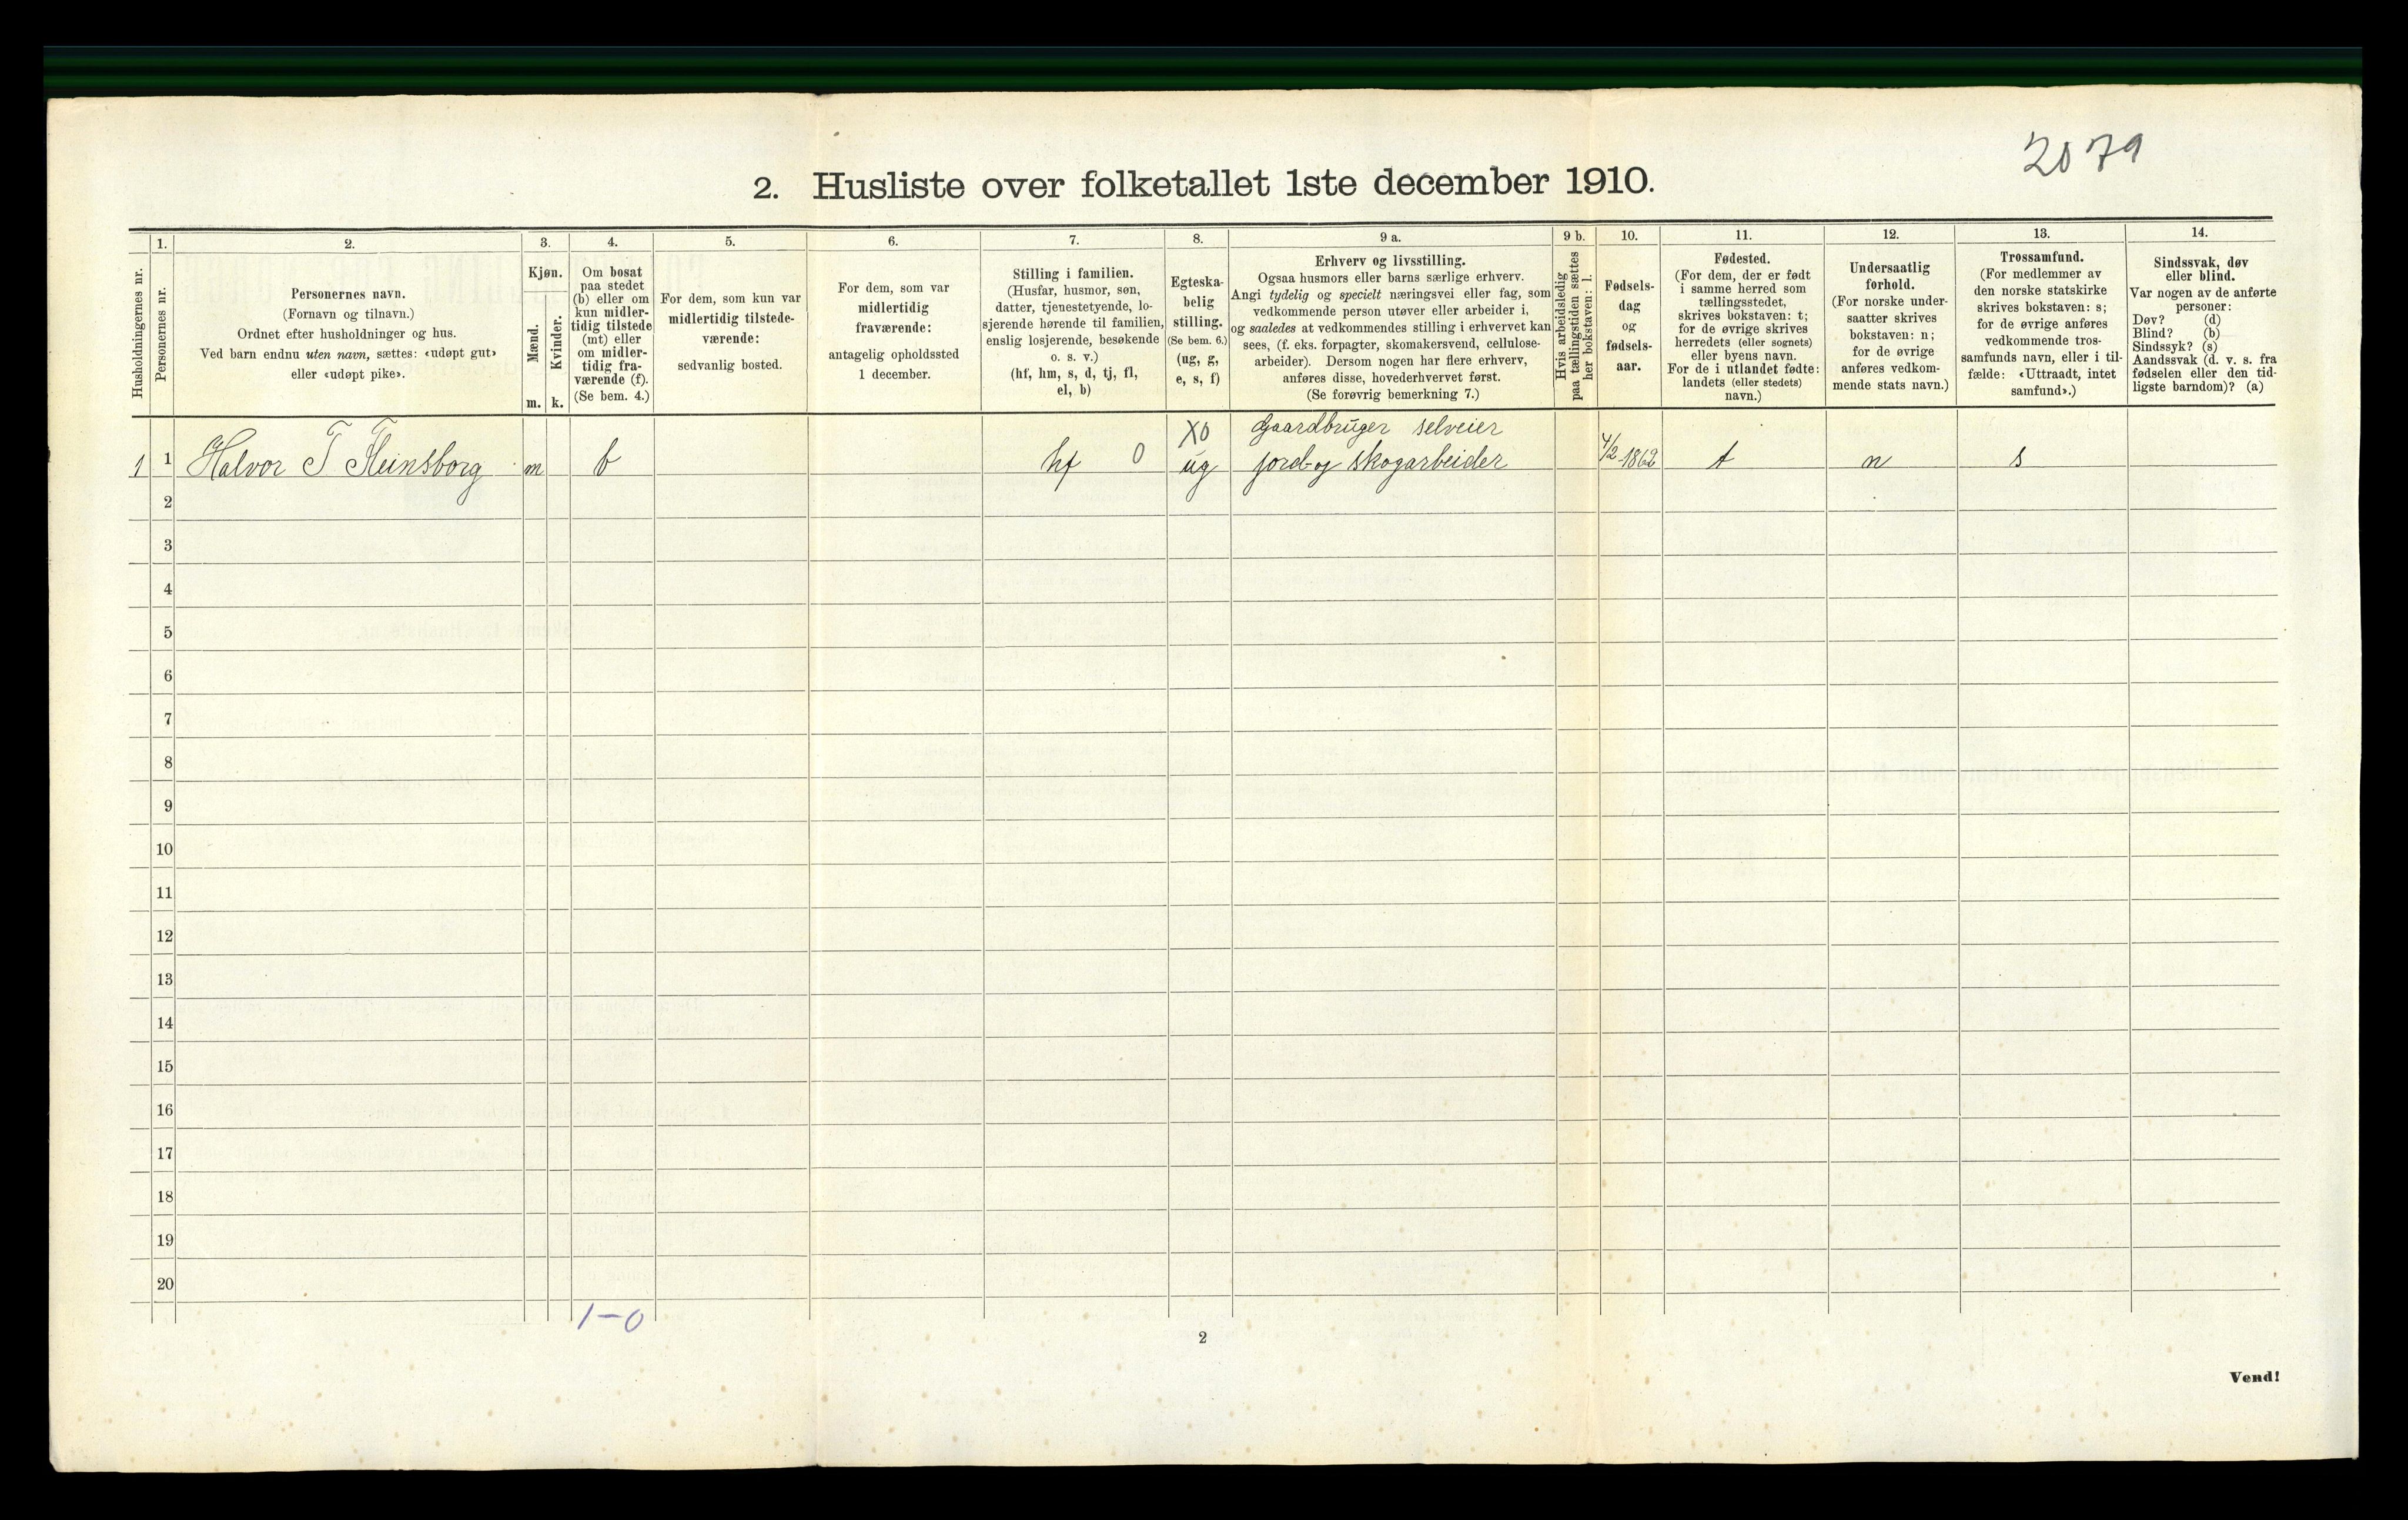 2079
2. Husliste over folketallet 1ste december 1910.
Husholdningernes nr.
1.
Personernes nr.
2.
Personernes navn.
(Fornavn og tilnavn.)
Ordnet efter husholdninger og hus.
Ved barn endnu uten navn, sættes: «udøpt gut»
eller «udøpt pike».
3.
Kjøn.
Mænd.
m.
Kvinder.
k.
4.
Om bosat
paa stedet
(b) eller om
kun midler-
tidig tilstede
(mt) eller
om midler-
tidig fra-
værende (f).
(Se bem. 4.)
5.
For dem, som kun var
midlertidig tilstede-
værende:
sedvanlig bosted.
6.
For dem, som var
midlertidig
fraværende:
antagelig opholdssted
1 december.
7.
Stilling i familien.
(Husfar, husmor, søn,
datter, tjenestetyende, lo-
sjerende hørende til familien,
enslig losjerende, besøkende
o. s. v.)
(hf, hm, s, d, tj, fl,
el, b)
8.
Egteska-
belig
stilling.
(Se bem. 6.)
(ug, g,
e, s, f)
9 a.
Erhverv og livsstilling.
Ogsaa husmors eller barns særlige erhverv.
Angi tydelig og specielt næringsvei eller fag, som
vedkommende person utøver eller arbeider i,
og saaledes at vedkommendes stilling i erhvervet kan
sees, (f. eks. forpagter, skomakersvend, cellulose-
arbeider). Dersom nogen har flere erhverv,
anføres disse, hovederhvervet først.
(Se forøvrig bemerkning 7.)
9 b.
Hvis arbeidsledig
paa tællingstiden sættes
her bokstaven: l.
10.
Fødsels-
dag
og
fødsels-
aar.
11.
Fødested.
(For dem, der er født
i samme herred som
tællingsstedet,
skrives bokstaven: t;
for de øvrige skrives
herredets (eller sognets)
eller byens navn.
For de i utlandet fødte:
landets (eller stedets)
navn.)
12.
Undersaatlig
forhold.
(For norske under-
saatter skrives
bokstaven: n;
for de øvrige
anføres vedkom-
mende stats navn.)
13.
Trossamfund.
(For medlemmer av
den norske statskirke
skrives bokstaven: s;
for de øvrige anføres
vedkommende tros-
samfunds navn, eller i til-
fælde: «Uttraadt, intet
samfund».)
14.
Sindssvak, døv
eller blind.
Var nogen av de anførte
personer:
Døv? (d)
Blind? (b)
Sindssyk? (s)
Aandssvak (d. v. s. fra
fødselen eller den tid-
ligste barndom)? (a)
X0 Gaardbruger selveier
1 1 Halvor T Fleinsborg m b hf 0 ug jord-og skogarbeider 4/2-1862 t n s
2
3
4
5
6
7
8
9
10
11
12
13
14
15
16
17
18
19
20
1-0
2
Vend!